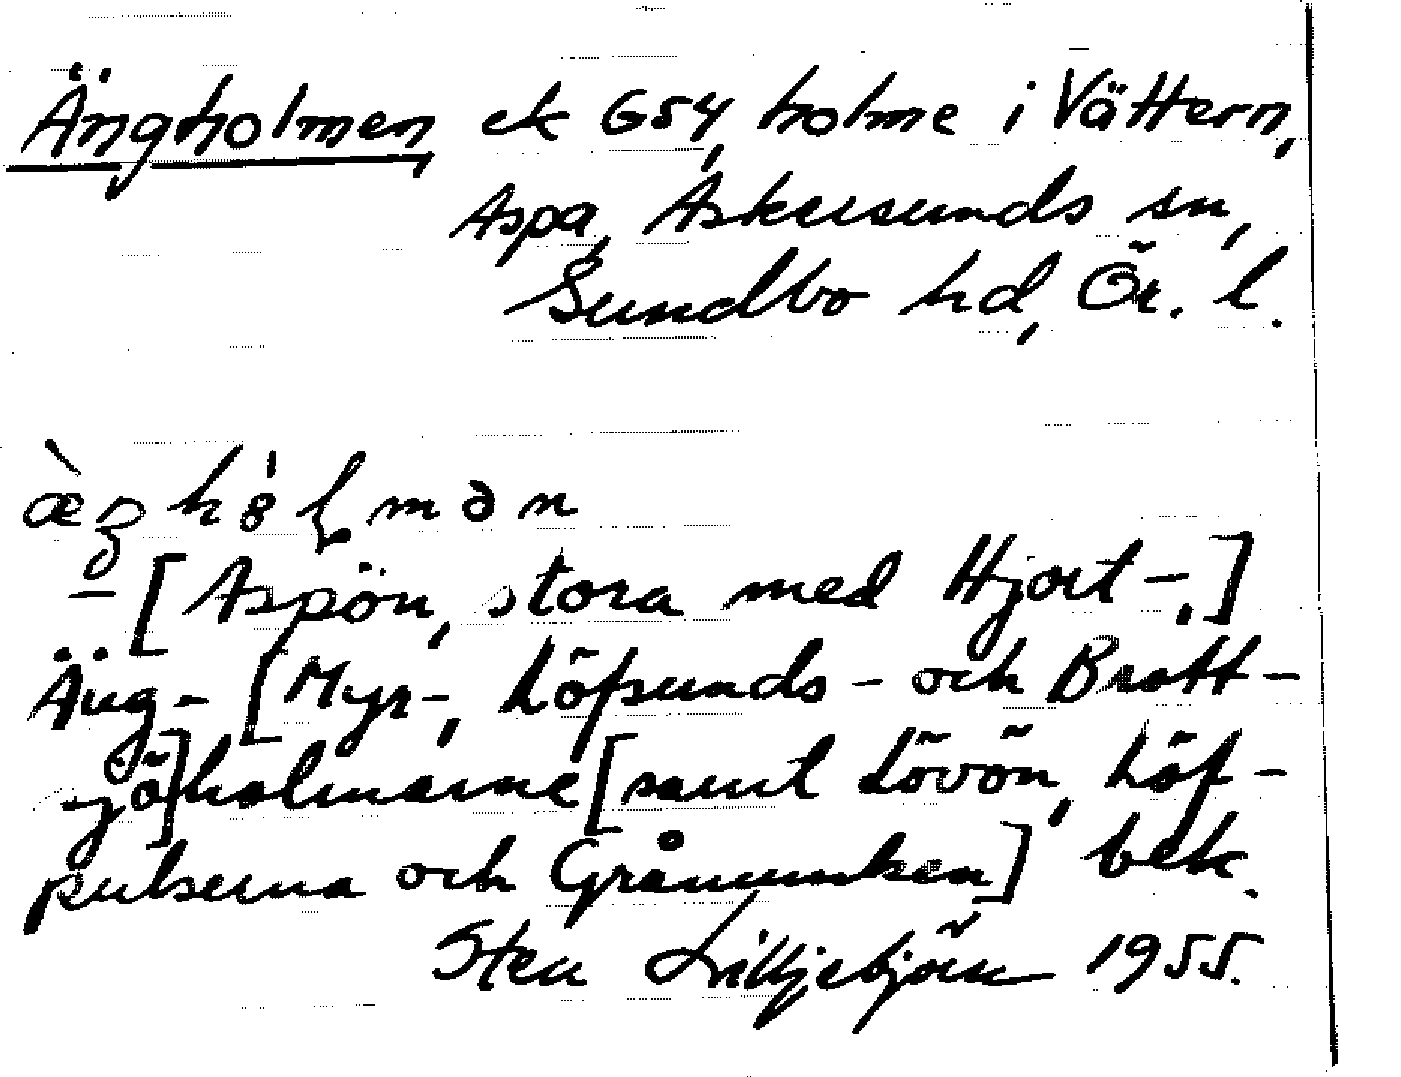 Ängholmen, ek G54, holme i Vättern,
Aspa, Askersunds sn,
Sundbo hd, Ör. l.
-[Aspön, stora med Hjort-,]
Äng-[Myr-, Löfsunds- och Bratt-
holmarne[samt Lövön, Löf-
och Gråmunken] bek.
Sten Lilljebjörn 1955.